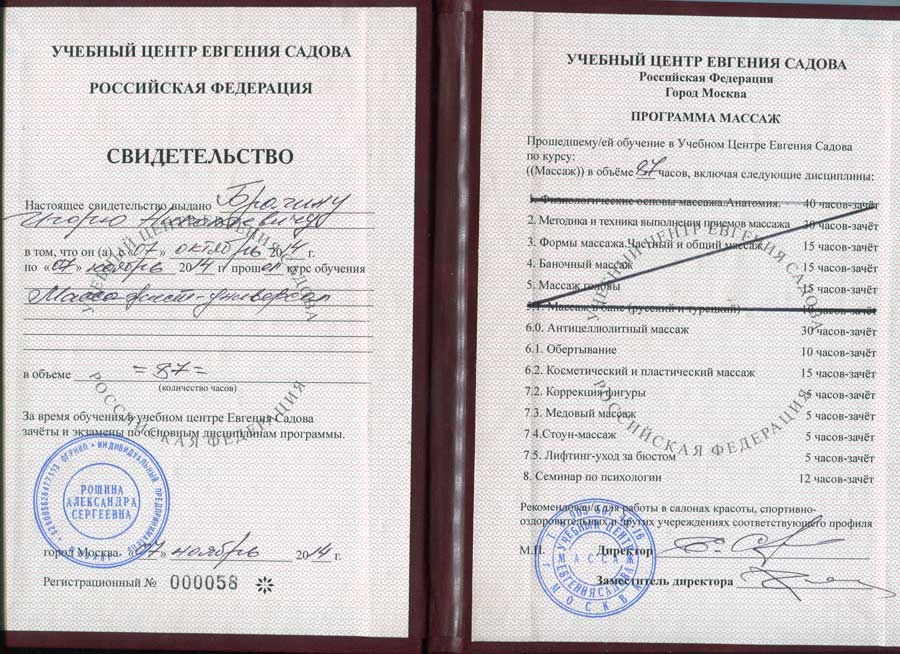 УЧЕБНЫЙ ЦЕНТР ЕВГЕНИЯ САДОВА
РОССИЙСКАЯ ФЕДЕРАЦИЯ
СВИДЕТЕЛЬСТВО
Настоящее свидетельство выдано Брагину
Игорю
в том, что он (а) с «07» октябрь 2014 г.
по «07» ноябрь 2014 г. прошел курс обучения
Массажист-универсал
в объеме =87=
(количество часов)
За время обучения в учебном центре Евгения Садова
зачёты и экзамены по основным дисциплинам программы.
УЧЕБНЫЙ ЦЕНТР ЕВГЕНИЯ САДОВА
РОССИЙСКАЯ ФЕДЕРАЦИЯ
ИНДИВИДУАЛЬНЫЙ ПРЕДПРИНИМАТЕЛЬ
РОШИНА
АЛЕКСАНДРА
СЕРГЕЕВНА
город Москва «07» ноябрь 2014 г.
Регистрационный № 000058
УЧЕБНЫЙ ЦЕНТР ЕВГЕНИЯ САДОВА
Российская Федерация
Город Москва
ПРОГРАММА МАССАЖ
Прошедшему/ей обучение в Учебном Центре Евгения Садова
по курсу:
((Массаж)) в объёме 87 часов, включая следующие дисциплины:
1. Физиологические основы массажа.Анатомия. 40 часов-зачёт
2. Методика и техника выполнения приемов массажа 30 часов-зачёт
3. Формы массажа.Частный и общий массаж 15 часов-зачёт
4. Баночный массаж 15 часов-зачёт
5. Массаж головы 15 часов-зачёт
5.1. Массаж в бане (русский и турецкий) 10 часов-зачёт
6.0. Антицеллюлитный массаж 30 часов-зачёт
6.1. Обертывание 10 часов-зачёт
6.2. Косметический и пластический массаж 15 часов-зачёт
7.2. Коррекция фигуры 5 часов-зачёт
7.3. Медовый массаж 5 часов-зачёт
7 4.Стоун-массаж 5 часов-зачёт
7.5. Лифтинг-уход за бюстом 5 часов-зачёт
8. Семинар по психологии 12 часов-зачёт
УЧЕБНЫЙ ЦЕНТР ЕВГЕНИЯ САДОВА
РОССИЙСКАЯ ФЕДЕРАЦИЯ
Рекомендован/а для работы в салонах красоты, спортивно-
оздоровительных и других учереждениях соответствующего профиля
М.П. Директор
Заместитель директора
УЧЕБНЫЙ ЦЕНТР
ЕВГЕНИЯ САДОВА
МОСКВА